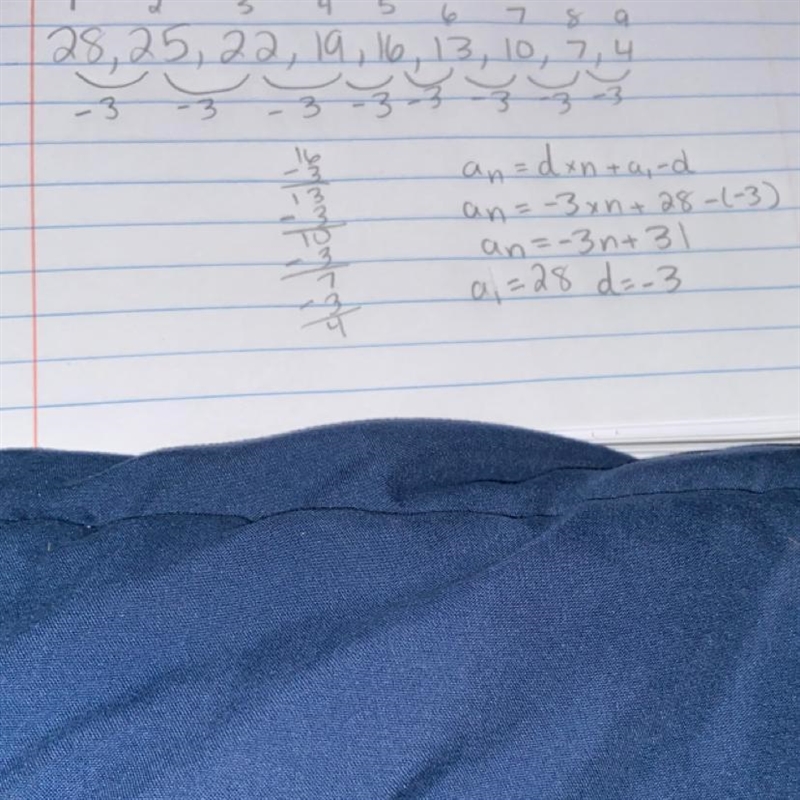 1 2 3 4 5 6 7 8 9
28, 25, 22, 19, 16, 13, 10, 7, 4
-3 -3 -3 -3 -3 -3 -3 -3
16
-3
13
-3
10
-3
7
-3
4
an = d×n + a1-d
an = -3×n + 28 -(-3)
an = -3n + 31
a1 = 28 d = -3